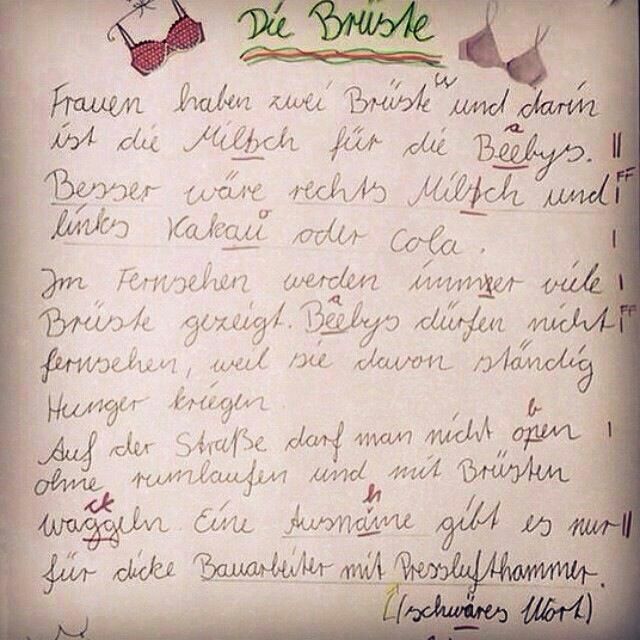 Die Brüste
Frauen haben zwei Brüste und darin
ist die Miltsch für die Beebys. ||
a
Besser wäre rechts Miltsch und | FF
links Kakau oder Cola. |
o
Im Fernsehen werden immer viele |
Brüste gezeigt. Beebys dürfen nicht | FF
a
fernsehen, weil sie davon ständig
Hunger kriegen.
Auf der Straße darf man nicht open |
b
ohne rumlaufen und mit Brüsten
waggeln. Eine Ausname gibt es nur ||
ck h
für dicke Bauarbeiter mit Presslufthammer.
(schwäres Wort)